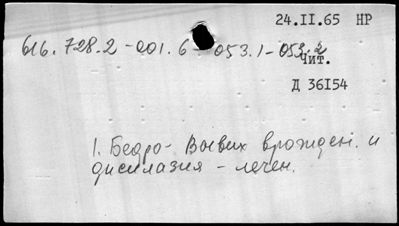 24.II.65 НР
616.728.2-001.6-053.1-053.2
Чит.
Д 36154
1. Бедро- Вывих врожден. и
дисплазия - лечен.